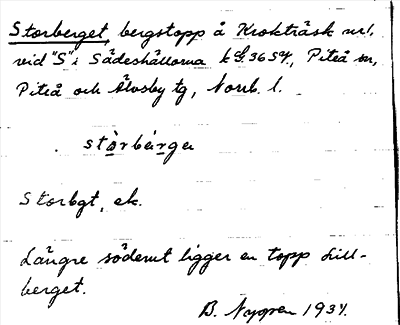 Storberget, bergstopp å Krokträsk nr 1,
vid "S" i Sädeshällorna k bl. 36 S4, Piteå sn,
Piteå och Älvsby tg, Norrb. l.
stòrbérga
Storbgt, ek.
Längre söderut ligger en topp Lill-
berget.
B. Nygren 1937.